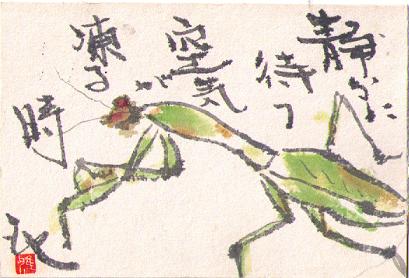 静かに
待つ
空気が
凍る
時